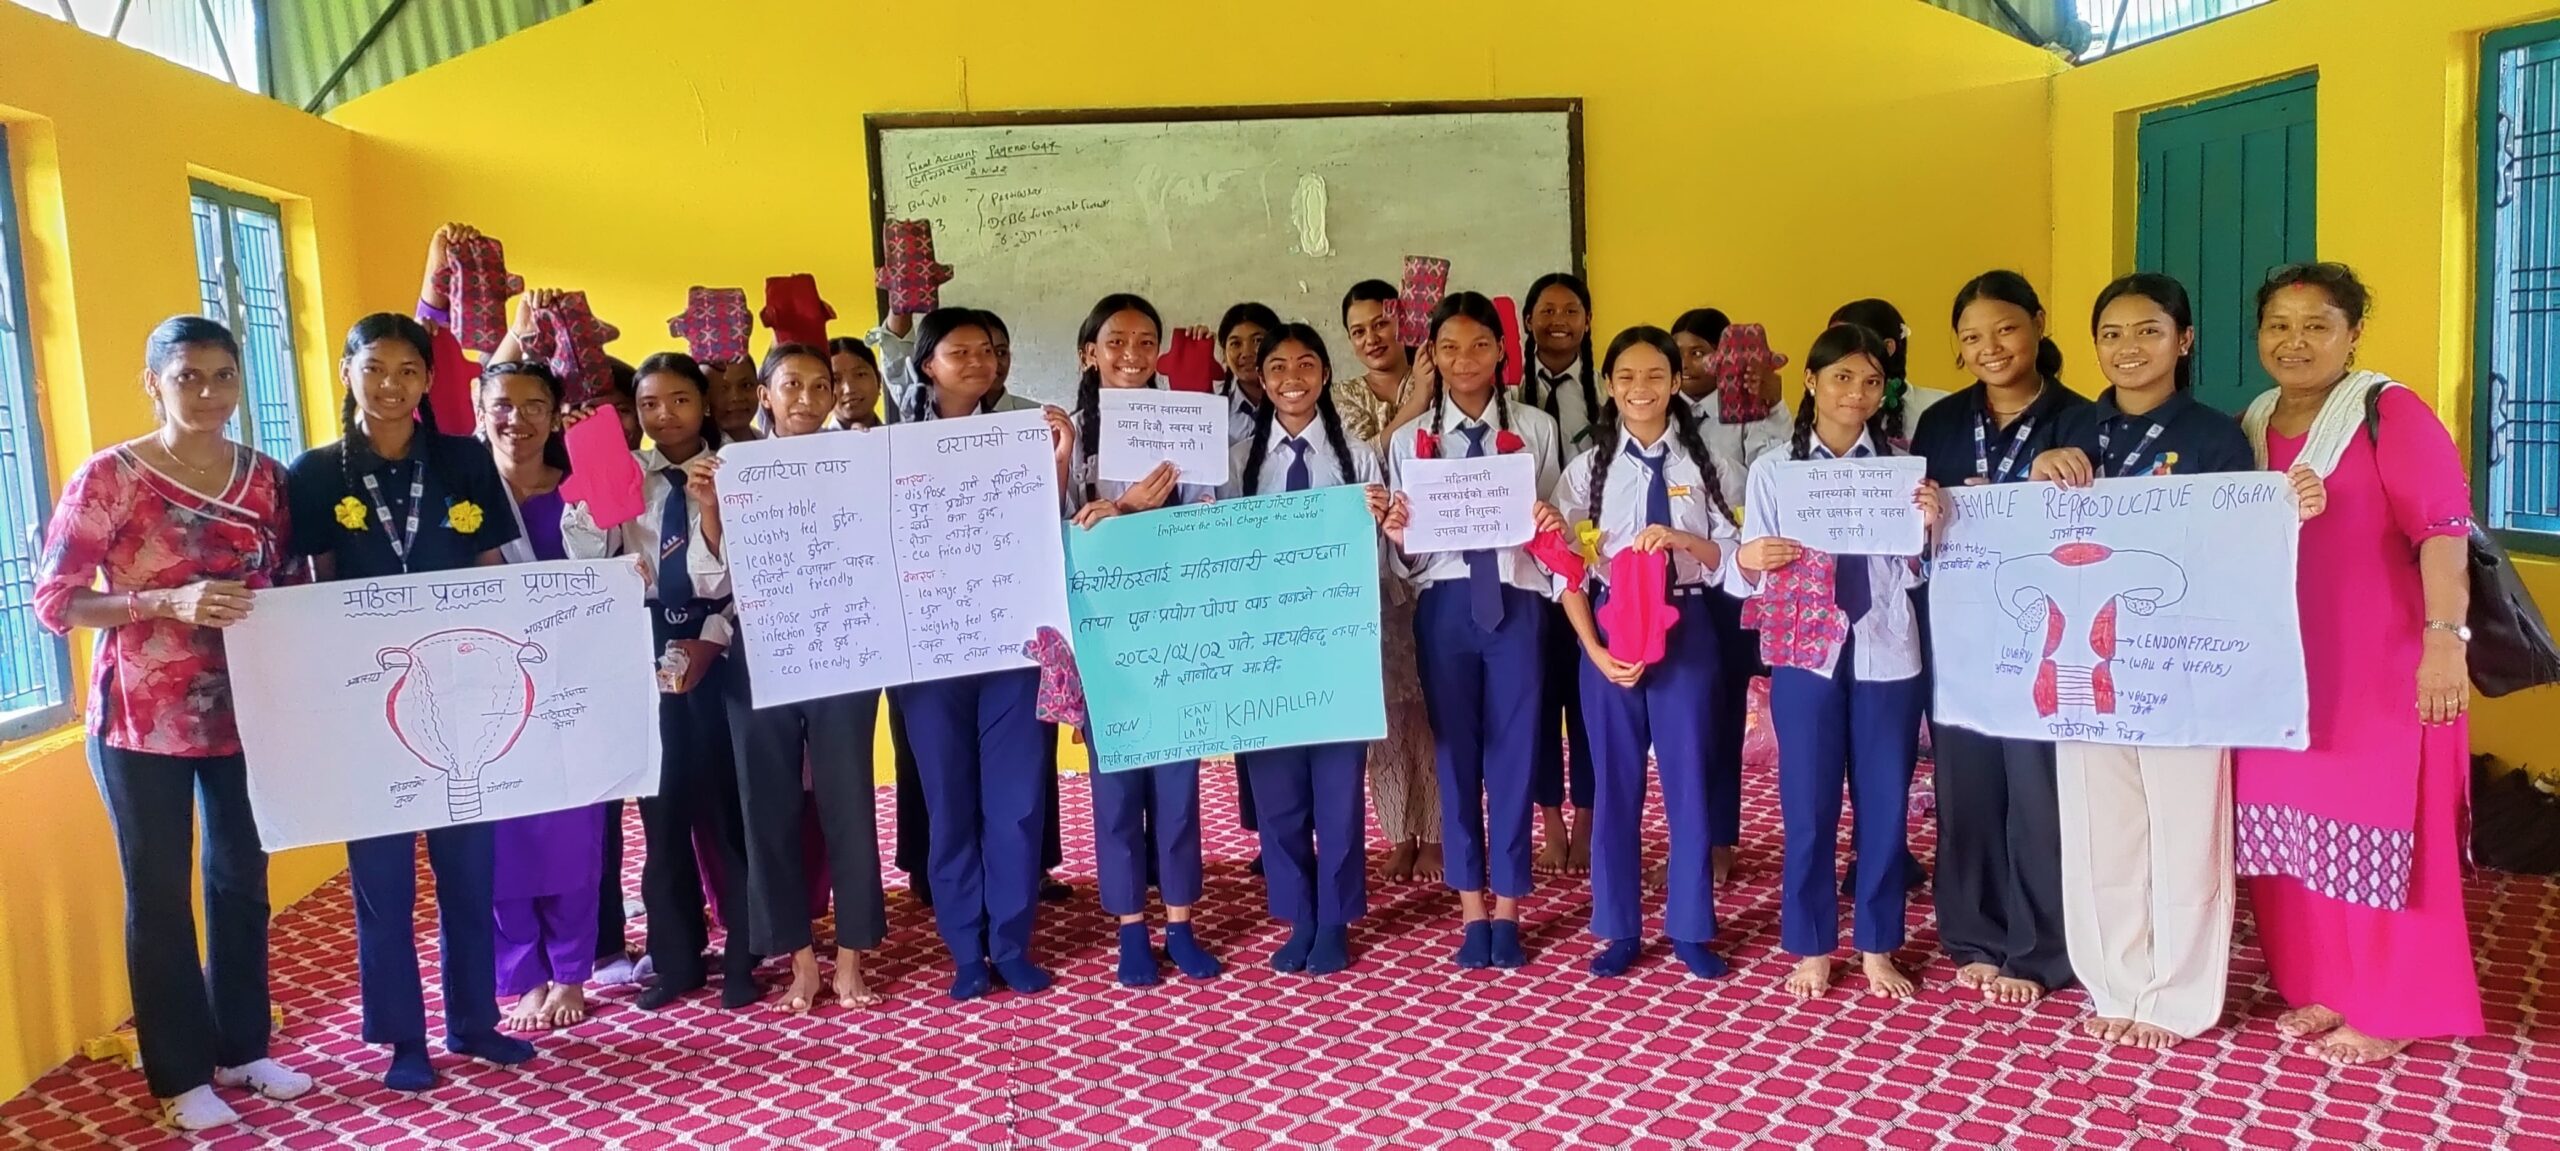 Final Account Page no. 644
महिला प्रजनन प्रणाली
अण्डवाहिनी नली
गर्भाशय
पाठेघरको
योनीमार्ग
बजारिया प्याड
फाइदा:-
- comfortable
- weighty feel हुदैन,
- leakage हुदैन,
- सजिलै बजारमा पाइन्छ
- Travel friendly
- dispose गर्न गाह्रो,
- infection हुन सक्छ,
- खर्च बढि हुन्छ,
- eco friendly हुदैन,
घरायसी प्याड
फाइदा:-
- dispose गर्न सजिलो
- पुनः प्रयोग गर्न सकिन्छ
- खर्च कम हुन्छ,
- eco friendly हुन्छ,
बेफाइदा:-
- leakage हुन सक्छ,
- धुन पर्छ,
- weighty feel हुन्छ,
प्रजनन स्वास्थ्यमा
ध्यान दिऔं, स्वस्थ भई
जीवनयापन गरौं ।
"Empower the Girl Change the world"
किशोरीहरूलाई महिनावारी स्वच्छता
तथा पुनःप्रयोग योग्य प्याड बनाउने तालिम
२०८२/०५/०२ गते, मध्यविन्दु न.पा-१५
श्री ज्ञानोदय मा.वि.
JCYCN
KAN
AL
LAN
KANALLAN
जागृति बाल तथा युवा सरोकार नेपाल
महिनावारी
सरसफाईको लागि
प्याड निशुल्क
उपलब्ध गराऔं ।
यौन तथा प्रजनन
स्वास्थ्यको बारेमा
खुलेर छलफल र बहस
सुरु गरौं ।
FEMALE REPRODUCTIVE ORGAN
गर्भाशय
(OVARY)
(ENDOMETRIUM)
(WALL of UTERUS)
VAGINA
पाठेघरको चित्र